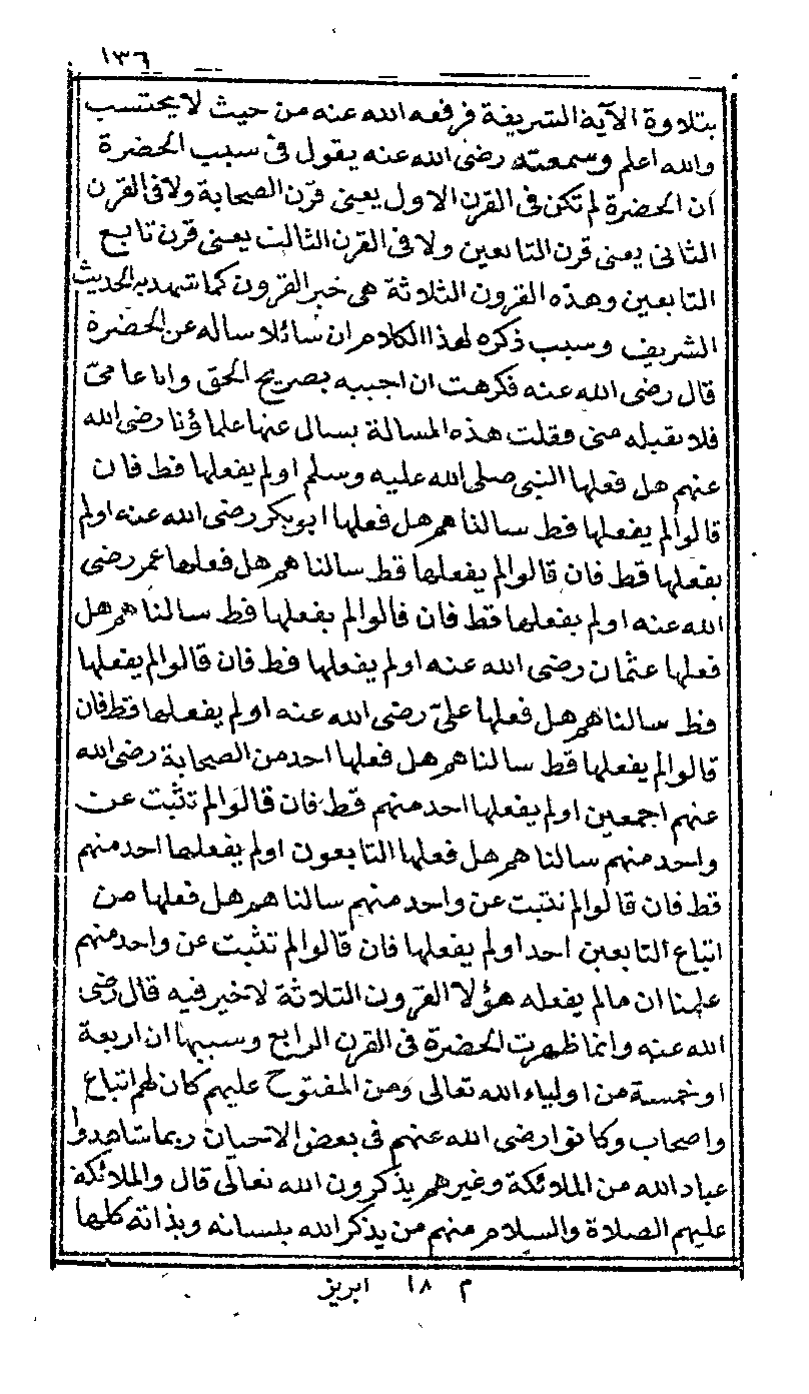 ١٣٦
بتلاوة الآية الشريفة فرفعه الله عنه من حيث لا يحتسب
والله اعلم وسمعته رضى الله عنه يقول فى سبب الحضرة
ان الحضرة لم تكن فى القرن الاول يعنى قرن الصحابة ولا فى القرن
الثانى يعنى قرن التابعين ولا فى القرن الثالث يعنى قرن تابع
التابعين وهذه القرون الثلاثة هى خير القرون كما شهد به الحديث
الشريف وسبب ذكره لهذا الكلام ان سائلا ساله عن الحضرة
قال رضى الله عنه فكرهت ان اجيبه بصريح الحق وانا عامىّ
فلا يقبله منى فقلت هذه المسالة يسال عنها علماؤنا رضى الله
عنهم هل فعلها النبى صلى الله عليه وسلم اولم يفعلها قط فان
قالوا لم يفعلها قط سالناهم هل فعلها ابو بكر رضى الله عنه اولم
يفعلها قط فان قالوا لم يفعلها قط سالناهم هل فعلها عمر رضى
الله عنه اولم يفعلها قط فان قالوا لم يفعلها قط سالناهم هل
فعلها عثمان رضى الله عنه اولم يفعلها قط فان قالوا لم يفعلها
قط سالناهم هل فعلها علىّ رضى الله عنه اولم يفعلها قط فان
قالوا لم يفعلها قط سالناهم هل فعلها احد من الصحابة رضى الله
عنهم اجمعين اولم يفعلها احد منهم قط فان قالوا لم تثبت عن
واحد منهم سالناهم هل فعلها التابعون اولم يفعلها احد منهم
قط فان قالوا لم تثبت عن واحد منهم سالناهم هل فعلها من
اتباع التابعين احد اولم يفعلها فان قالوا لم تثبت عن واحد منهم
علمنا ان ما لم يفعله هؤلا القرون الثلاثة لا خير فيه قال رضى
الله عنه وانما ظهرت الحضرة فى القرن الرابع وسببها ان اربعة
او خمسة من اولياء الله تعالى ومن المفتوح عليهم كان لهم اتباع
واصحاب وكانوا رضى الله عنهم فى بعض الاحيان ربما شاهدوا
عباد الله من الملائكة وغيرهم يذكرون الله تعالى قال والملائكة
عليهم الصلاة والسلام منهم من يذكر الله بلسانه وبذاته كلها
م ١٨ ابريز